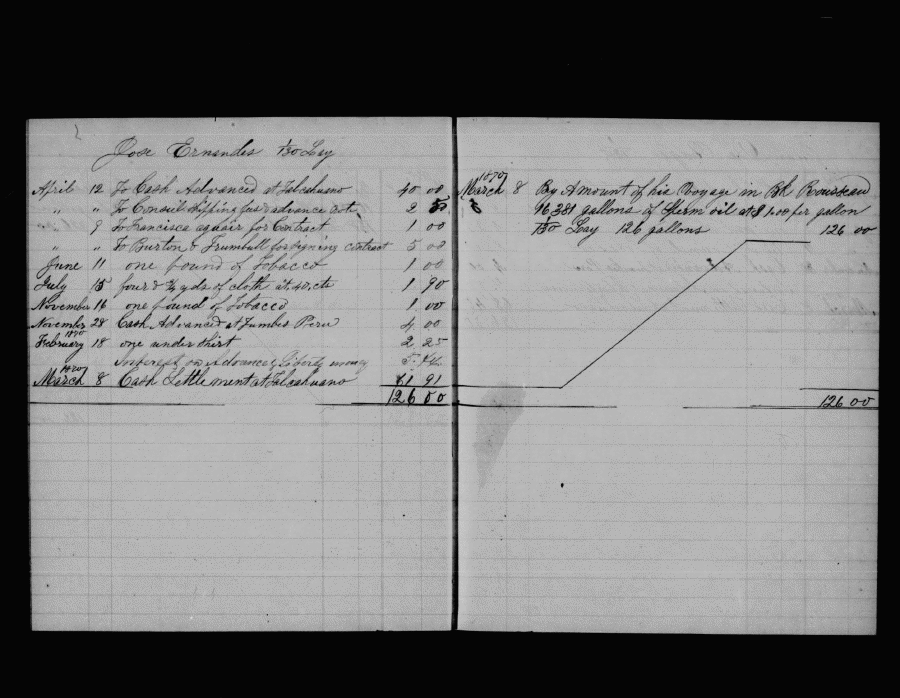 Jose Ernandes 1/130 Lay
April 12 To Cash Advanced at Talcahuano 40 00
" " To Consil shipping fees & advance 2 50
" 9 To Francisca for Contract 1 00
" " To Burton & Trumbull for signing contract 5 00
June 11 one pound of Tobacco 1 00
July 15 four & yds of cloth at 40 cts 1 90
November 16 one pound of tobacco 1 00
November 28 Cash Advanced at Tumbes Peru 4 00
1870
February 18 one under shirt 2 25
Interest on Advance & Liberty money
1870
March 8 Cash Settlement at Talcahuano 61 91
126 00
1870
March 8 By Amount of his Voyage in Bk Rousseau
16381 gallons of Sperm oil at $1.00 per gallon
1/130 Lay 126 gallons 126 00
126 00